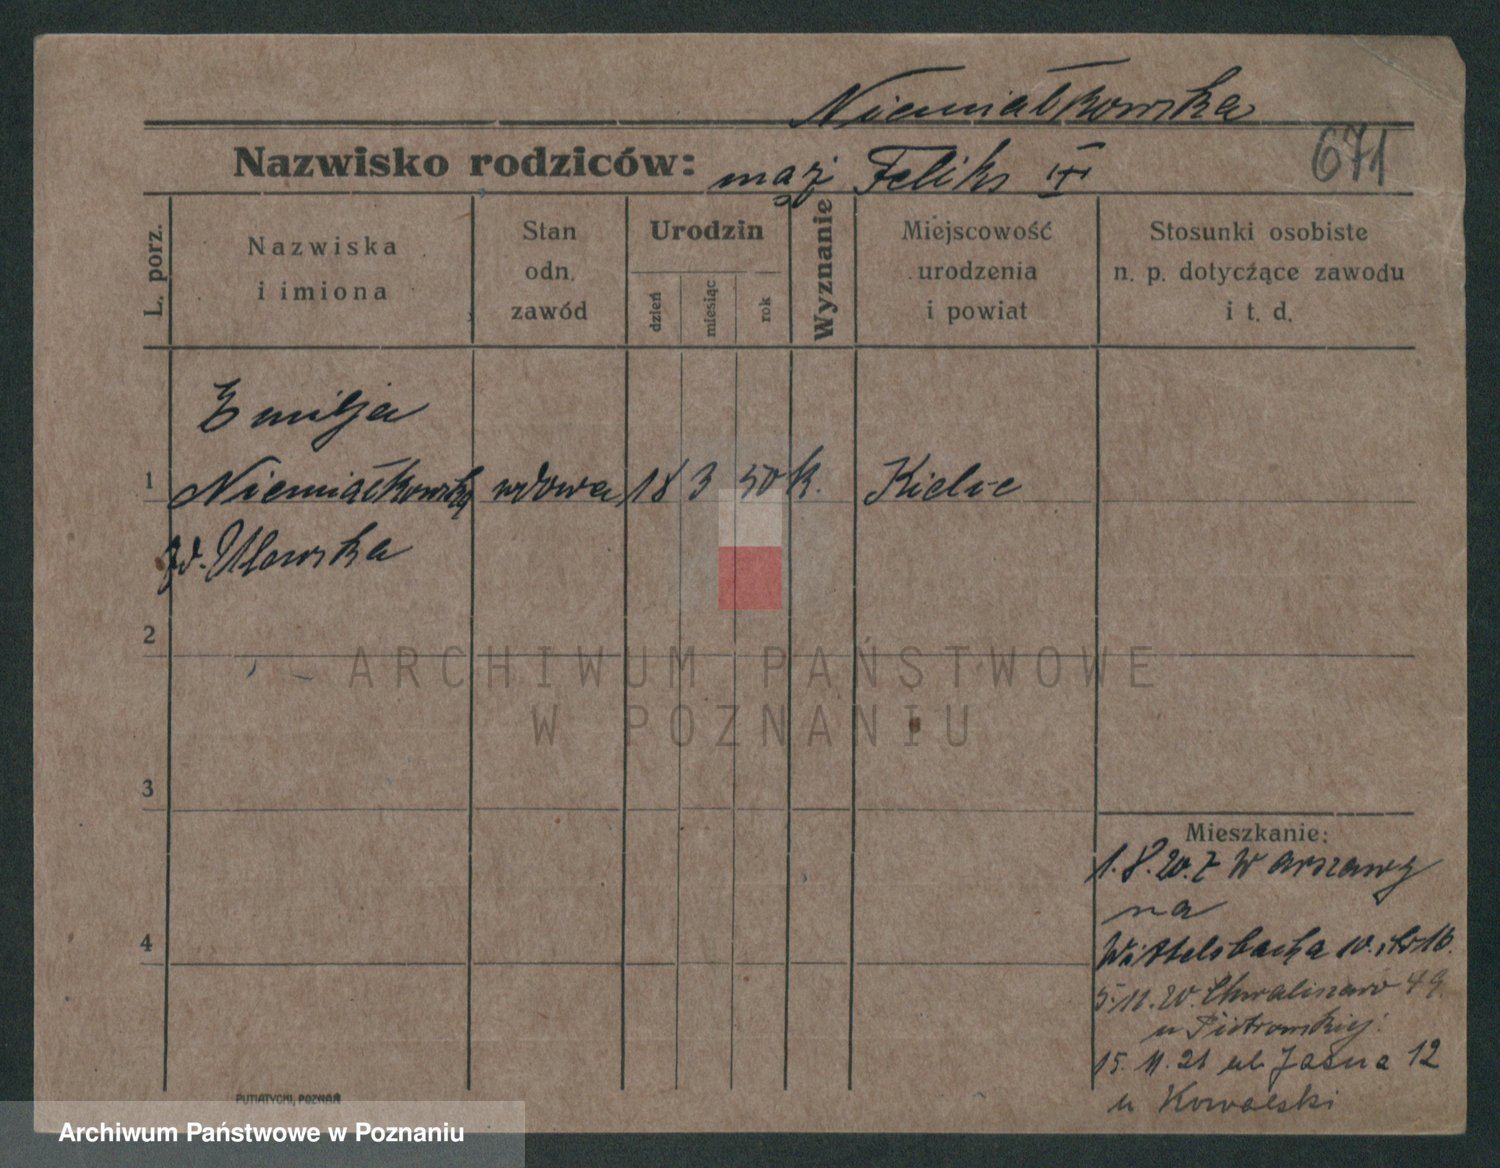 Niemiałkowska
Nazwisko rodziców: mąż Feliks
671
L. porz.
Nazwiska
i imiona
Stan
odn.
zawód
Urodzin
dzień
miesiąc
rok
Wyznanie
Miejscowość
urodzenia
i powiat
Stosunki osobiste
n. p. dotyczące zawodu
i t. d.
Emilja
1 Niemiałkowska wdowa 18 3 50 k. Kielce
2
3
4
Mieszkanie:
1.8.20. z Warszawy
na
Wittelsbacha 10.
5.11.20. Chwaliszewo 49.
u Piotrowskiej.
15.11.21 ul. Jasna 12
u Kowalski
PUTIATYCKI, POZNAŃ
ARCHIWUM PAŃSTWOWE
W POZNANIU
Archiwum Państwowe w Poznaniu